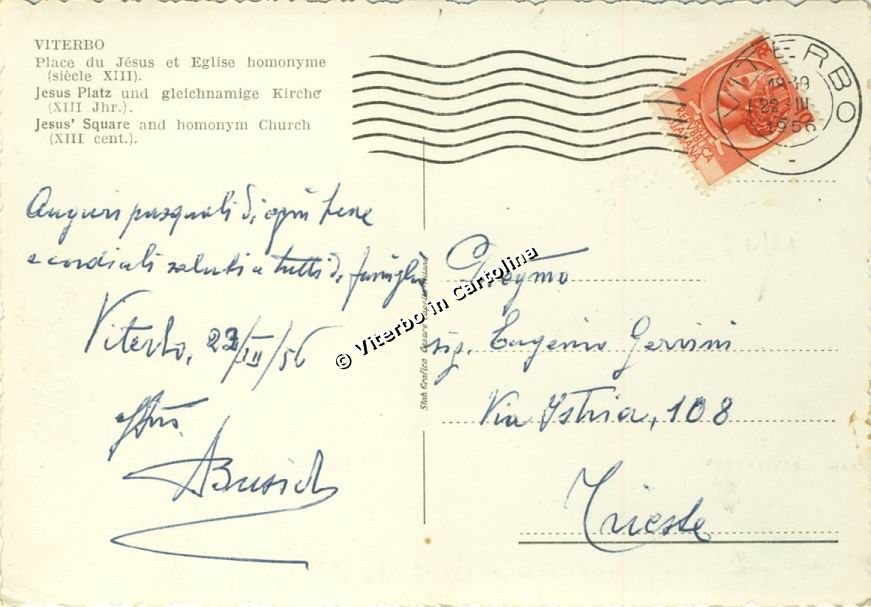 VITERBO
Place du Jésus et Eglise homonyme
(siècle XIII).
Jesus Platz und gleichnamige Kirche
(XIII Jhr.).
Jesus' Square and homonym Church
(XIII cent.).
VITERBO
22 III
1956
REPUBBLICA
ITALIANA
Auguri pasquali di ogni bene
e cordiali saluti a tutti di famiglia
Viterbo, 22/III/56
© Viterbo in Cartolina
Stab. Grafico Cesare
Preg.mo
sig. Eugenio Gervini
Via Istria, 108
Trieste